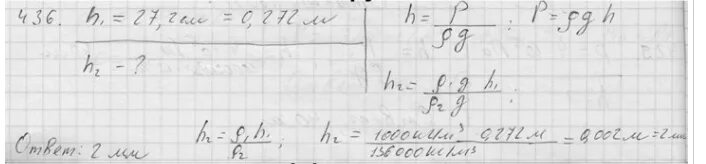 436. h₁ = 27,2 см = 0,272 м
h₂ - ?
h = P / ρg ; P = ρgh
h₂ = ρ₁ g h₁ / ρ₂ g ;
h₂ = ρ₁ h₁ / ρ₂ ; h₂ = 1000 кг/м³ · 0,272 м / 136000 кг/м³ = 0,002 м = 2 мм
Ответ: 2 мм